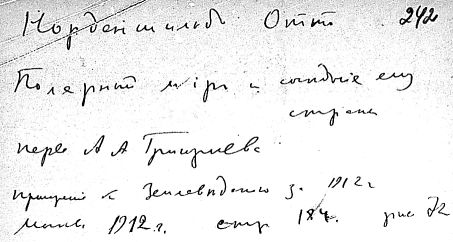 Норденшильд Отто 242
Полярный міръ и соседние ему
страны
перев А А Григорьева
к Землеведению за 1912 г
Москва 1912 г. стр 184. рис 72